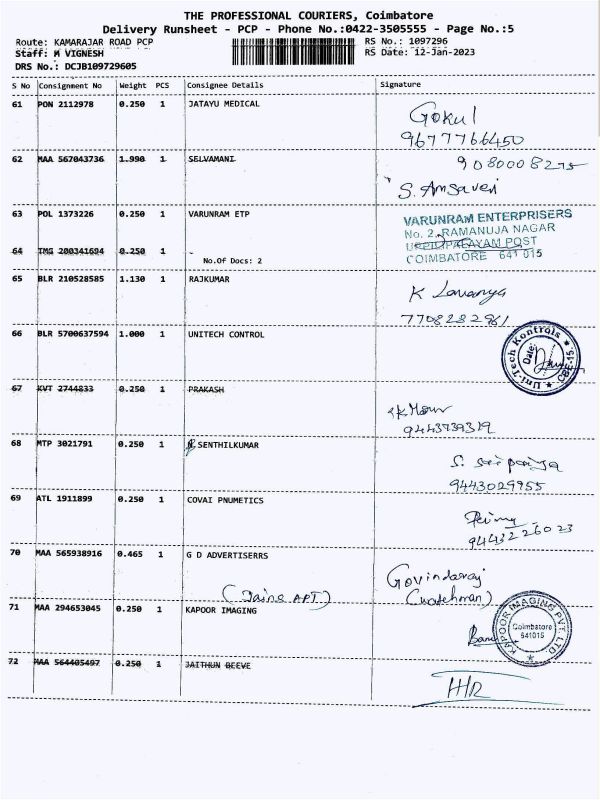 THE PROFESSIONAL COURIERS, Coimbatore
Delivery Runsheet - PCP - Phone No.:0422-3505555 - Page No.:5
Route: KAMARAJAR ROAD PCP RS No.: 1097296
Staff: M VIGNESH RS Date: 12-Jan-2023
DRS No.: DCJB109729605
S No Consignment No Weight PCS Consignee Details Signature
61 PON 2112978 0.250 1 JATAYU MEDICAL
Gokul
9677766450
62 MAA 567043736 1.990 1 SELVAMANI
9080008275
S. Ansaveni
63 POL 1373226 0.250 1 VARUNRAM ETP
VARUNRAM ENTERPRISERS
No. 2, RAMANUJA NAGAR
UPPILIPALAYAM POST
COIMBATORE 641 015
64 IMG 200341694 0.250 1
No.Of Docs: 2
65 BLR 210528585 1.130 1 RAJKUMAR
K Lavanya
7708282961
66 BLR 5700637594 1.000 1 UNITECH CONTROL
Uni-Tech Kontrols
Date:
CBE-15
67 KVT 2744833 0.250 1 PRAKASH
9443739319
68 MTP 3021791 0.250 1 SENTHILKUMAR
S. Saripariya
9443029955
69 ATL 1911899 0.250 1 COVAI PNUMETICS
9443226023
70 MAA 565938916 0.465 1 G D ADVERTISERRS
Govindaraj
(Jains APT) (watchman)
71 MAA 294653045 0.250 1 KAPOOR IMAGING
KAPOOR IMAGING PVT. LTD.
Coimbatore
641015
72 MAA 564405497 0.250 1 JAITHUN BEEVE